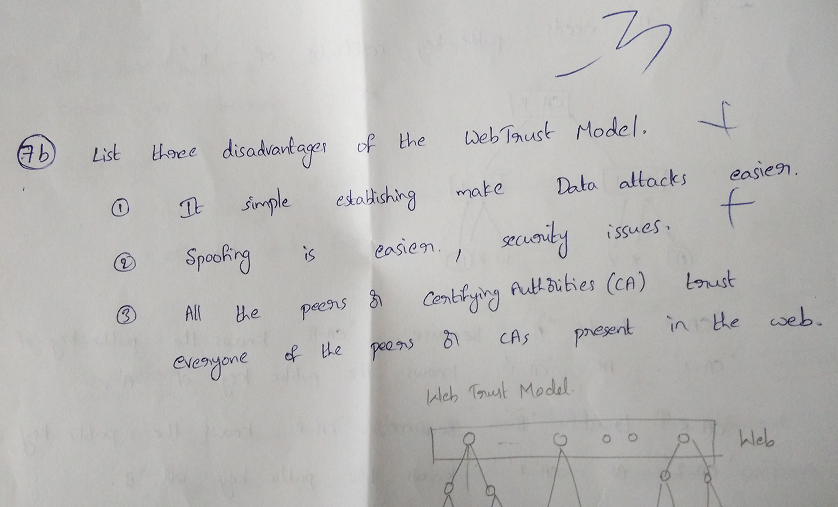 3
7b List three disadvantages of the Web Trust Model.
① It simple establishing make Data attacks easier.
② Spoofing is easier, security issues.
③ All the peers or Certifying Authorities (CA) trust
everyone of the peers or CAs present in the web.
Web Trust Model
Web